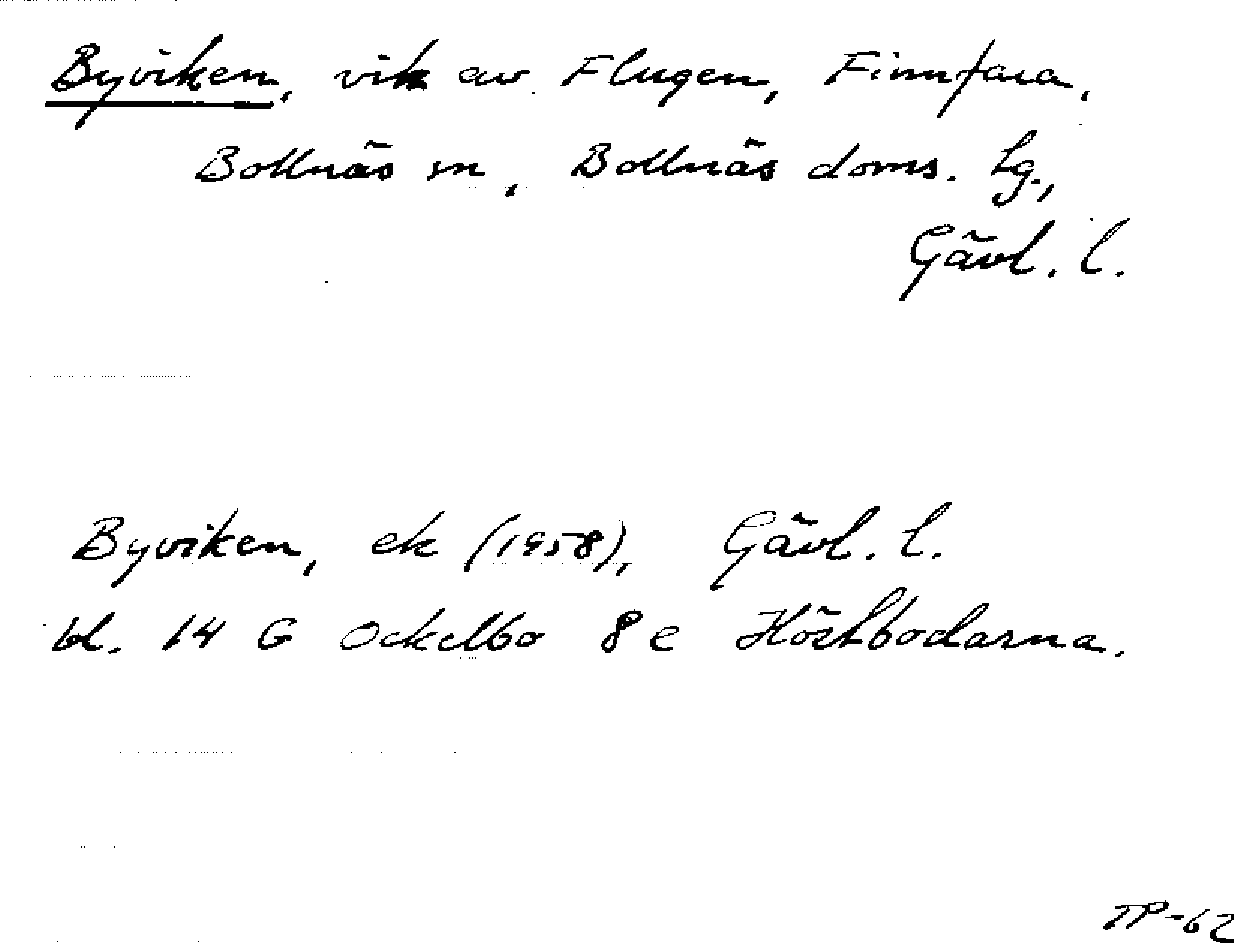 Byviken, vik av Flugen, Finnfara,
Bollnäs sn, Bollnäs doms. lg.,
Gävl. l.
Byviken, ek (1958), Gävl. l.
bl. 14 G Ockelbo 8 e Höstbodarna.
TP-62